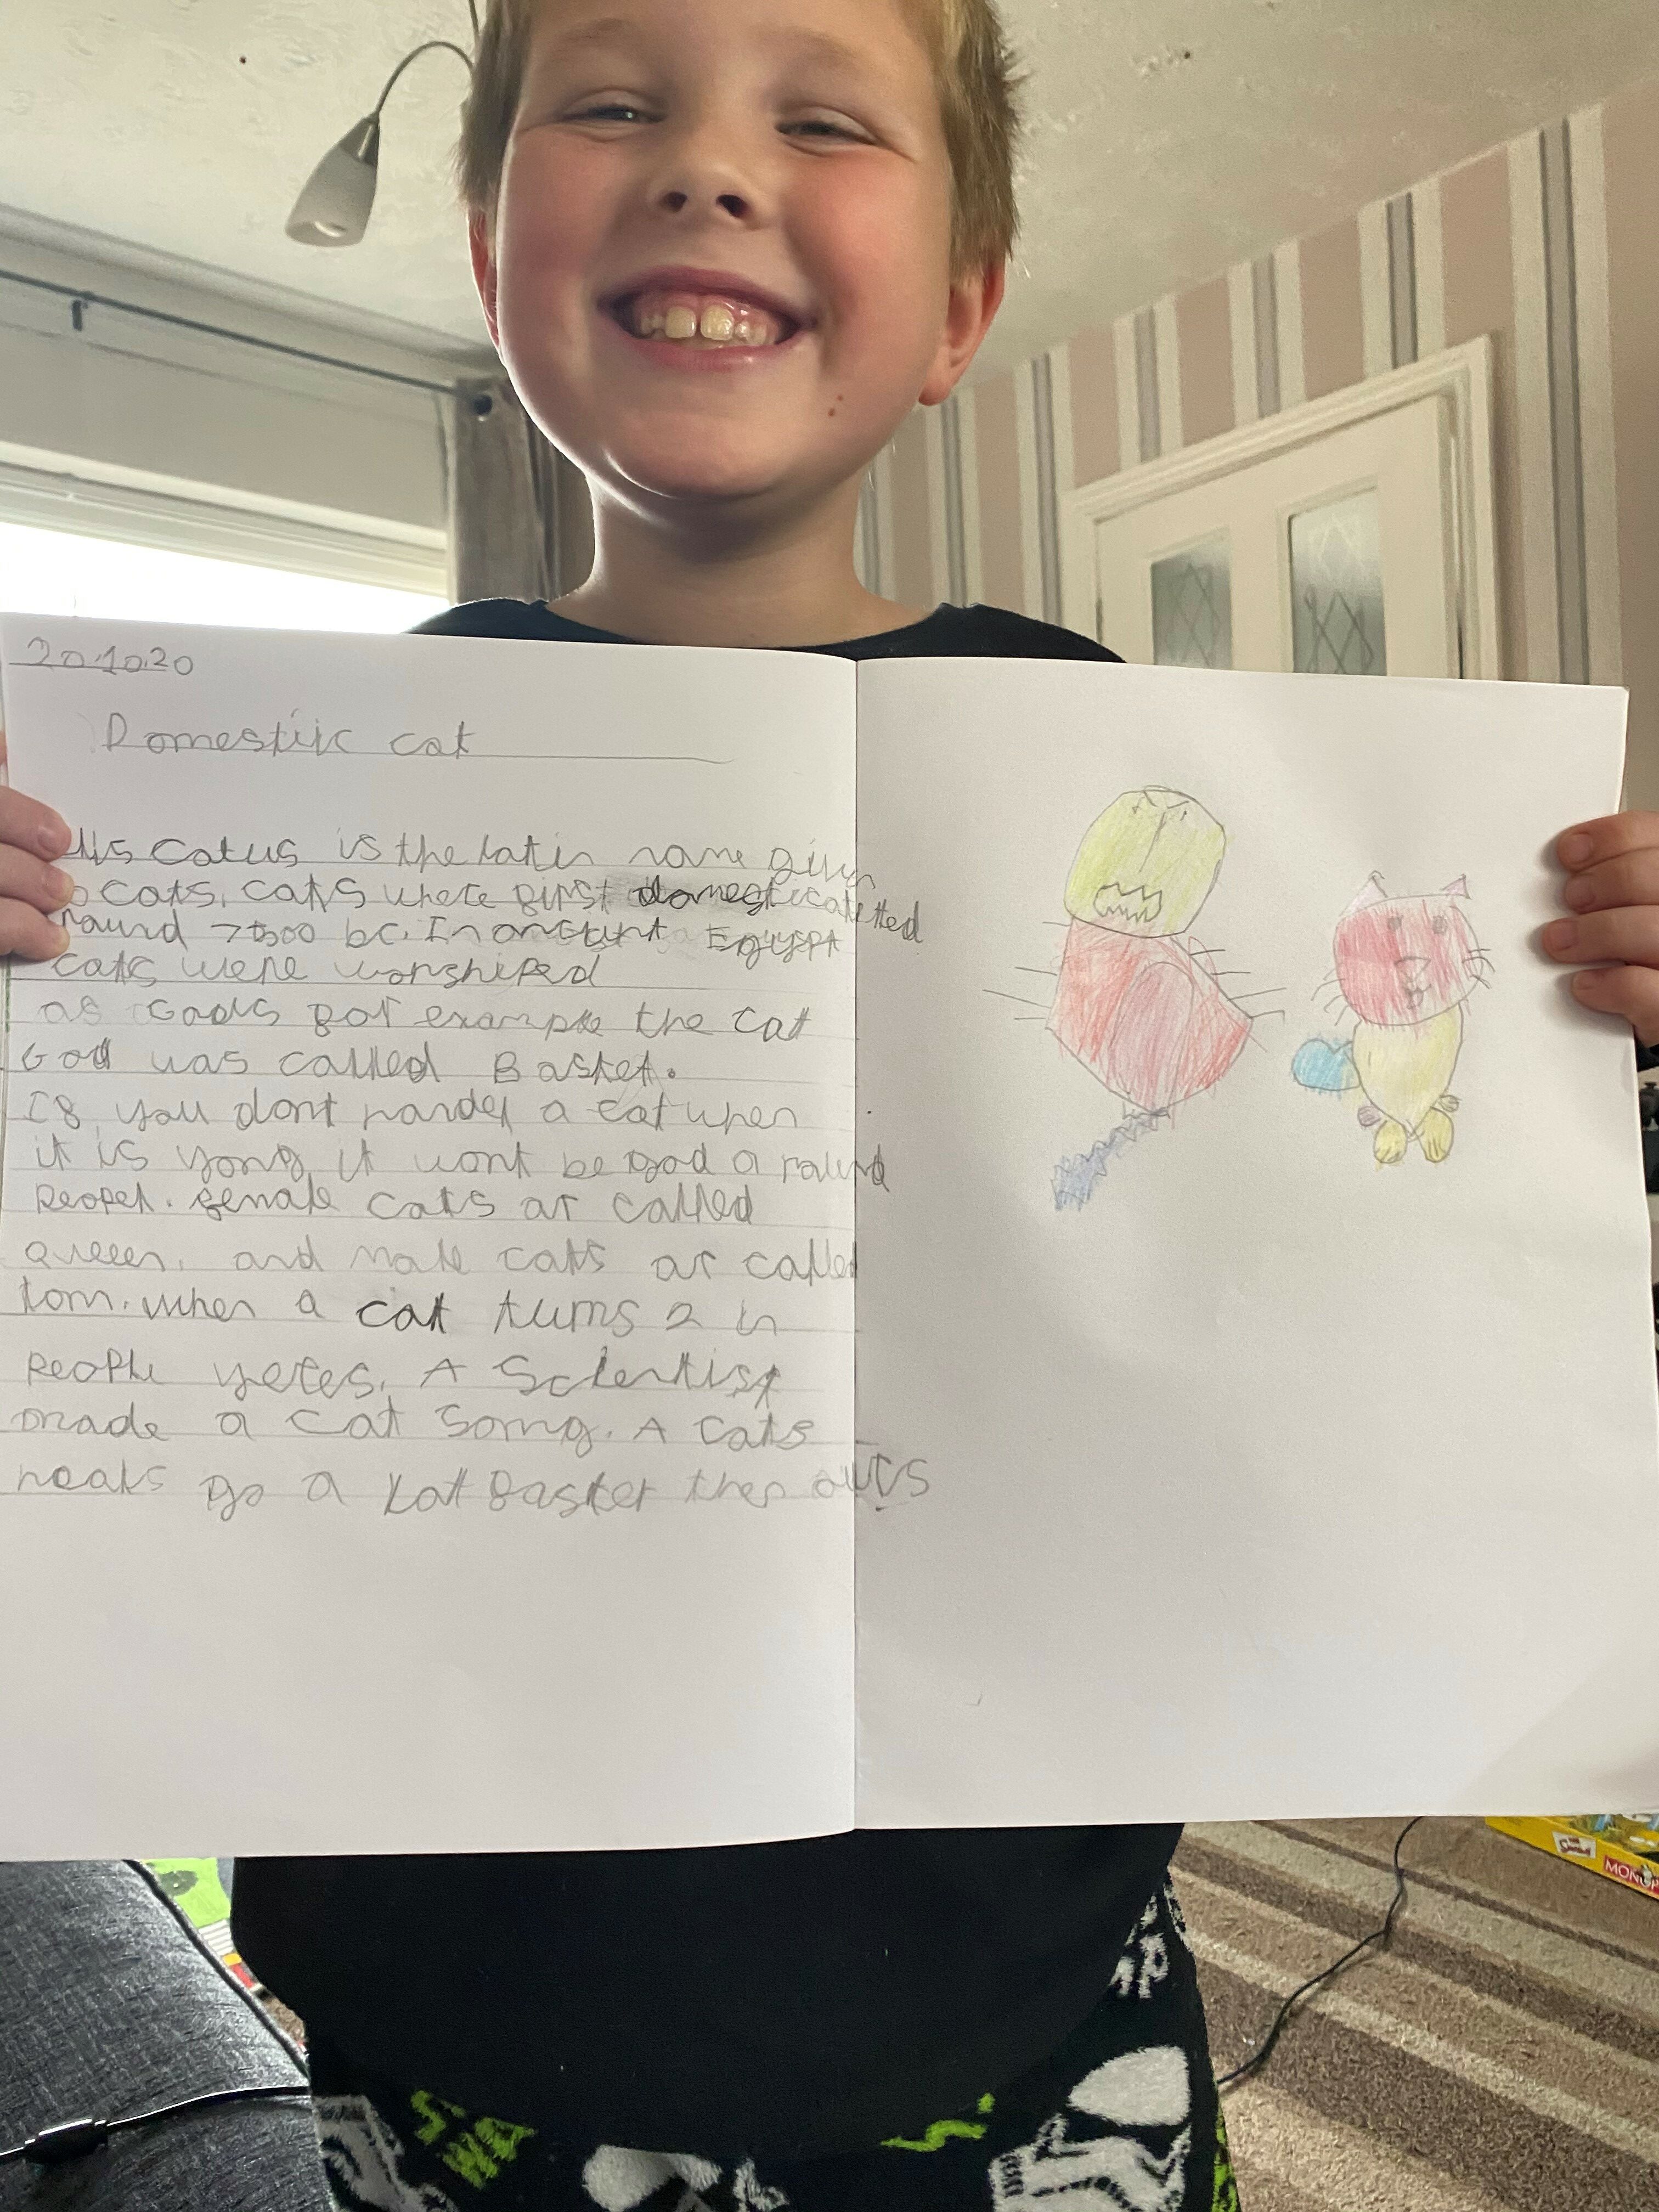 20.10.20
Domestic cat
lis Catus is the latin name given
o cats. cats where first domesticatetted
round 7500 bc. In Egyspt
cats were worshiped
as Gods for example the cat
God was called Bastet.
If you dont handel a cat when
it is yong it wont be god a raund
peopel. female cats ar called
queen. and male cats ar called
tom. when a cat turns 2 in
people yeres. A Scientist
made a cat song. A cats
heats go a lot faster then ours
MONOP